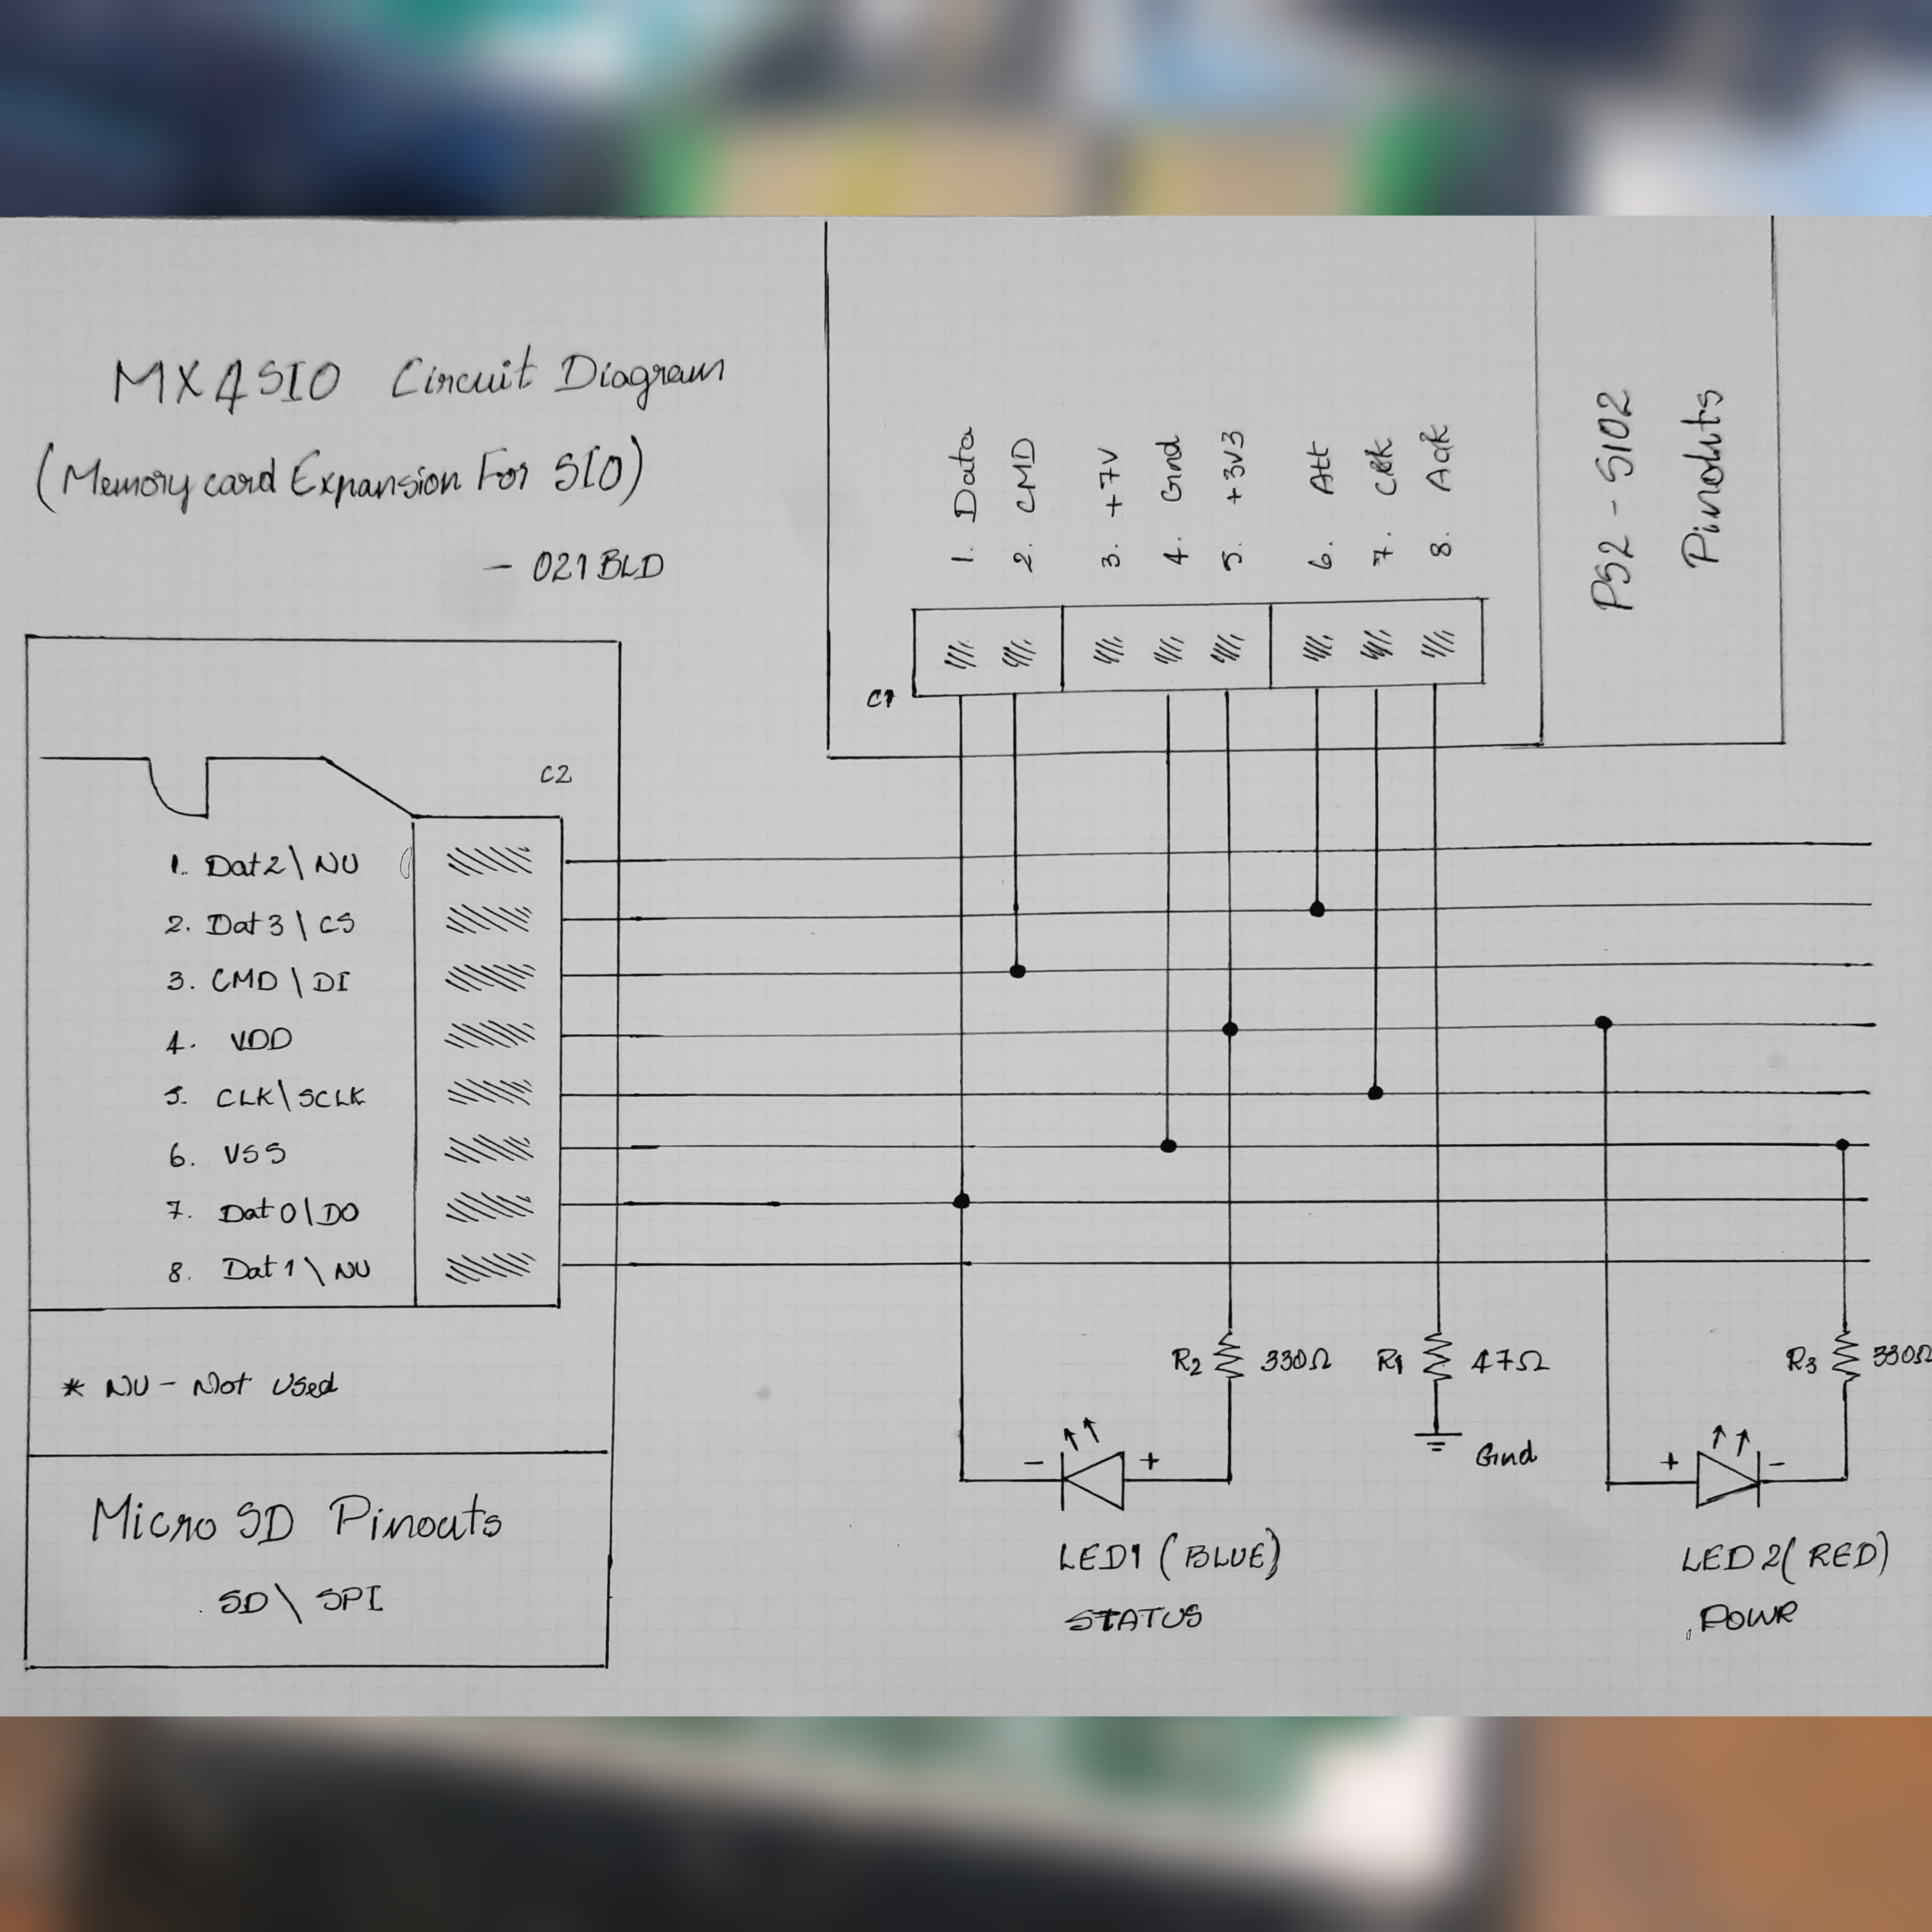 MX4SIO Circuit Diagram
(Memory card Expansion For SIO)
- 021BLD
1. Data
2. CMD
3. +7V
4. Gnd
5. +3V3
6. Att
7. Clk
8. Ack
PS2 - SIO2
Pinouts
C1
C2
1. Dat2\NU
2. Dat3\CS
3. CMD\DI
4. VDD
5. CLK\SCLK
6. VSS
7. Dat0\DO
8. Dat1\NU
* NU - Not Used
Micro SD Pinouts
SD\SPI
R2 330Ω
R1 47Ω
R3 330Ω
Gnd
- +
+ -
LED1 (BLUE)
STATUS
LED2 (RED)
POWR